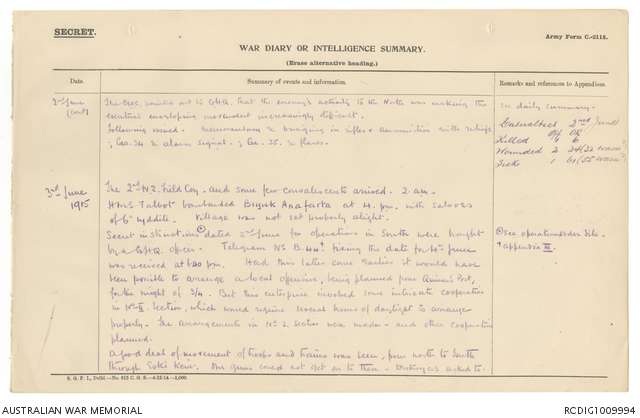 SECRET.
Army Form C.-2118.
WAR DIARY OR INTELLIGENCE SUMMARY.
(Erase alternative heading.)
Date.
Summary of events and information.
Remarks and references to Appendices.
2nd June
(cont)
that the enemy's activity to the North was making the
enveloping movement increasingly difficult.
Following issued. Memorandum re bringing in rifles & ammunition with reliefs;
G.a. 34 re alarm signal; G.a. 35. re flares.
see daily summary.
Casualties 2nd June
Off OR
Killed 4 6
Wounded 2 24
Sick 1 61
3rd June
1915
The 2nd N.Z. Field Coy. and some few convalescents arrived. 2 am.
HMS Talbot bombarded Biyuk Anafarta at 4. pm. with salvoes
of 6" lyddite. Village was not set properly alight.
Secret instructions dated 2nd June for operations in South were brought
by a GHQ officer. Telegram No B. fixing the date for 4th June
was received at pm. Had this latter come earlier it would have
been possible to arrange a local offensive, being planned from Quinn's Post,
for the night of 3/4. But this enterprise involved some intricate cooperation
in No II. Section, which would require several hours of daylight to arrange
properly. The arrangements in No 2. Section were made and other cooperation
planned.
A good deal of movement of troops and trains was seen, from north to South
through Koja Dere. Our guns could not get on to them. Destroyers asked to
see operation order file
appendix III.
S. G. P. I., Delhi.—No. 815 C. G. S.—4-12-14—5,000.
AUSTRALIAN WAR MEMORIAL
RCDIG1009994